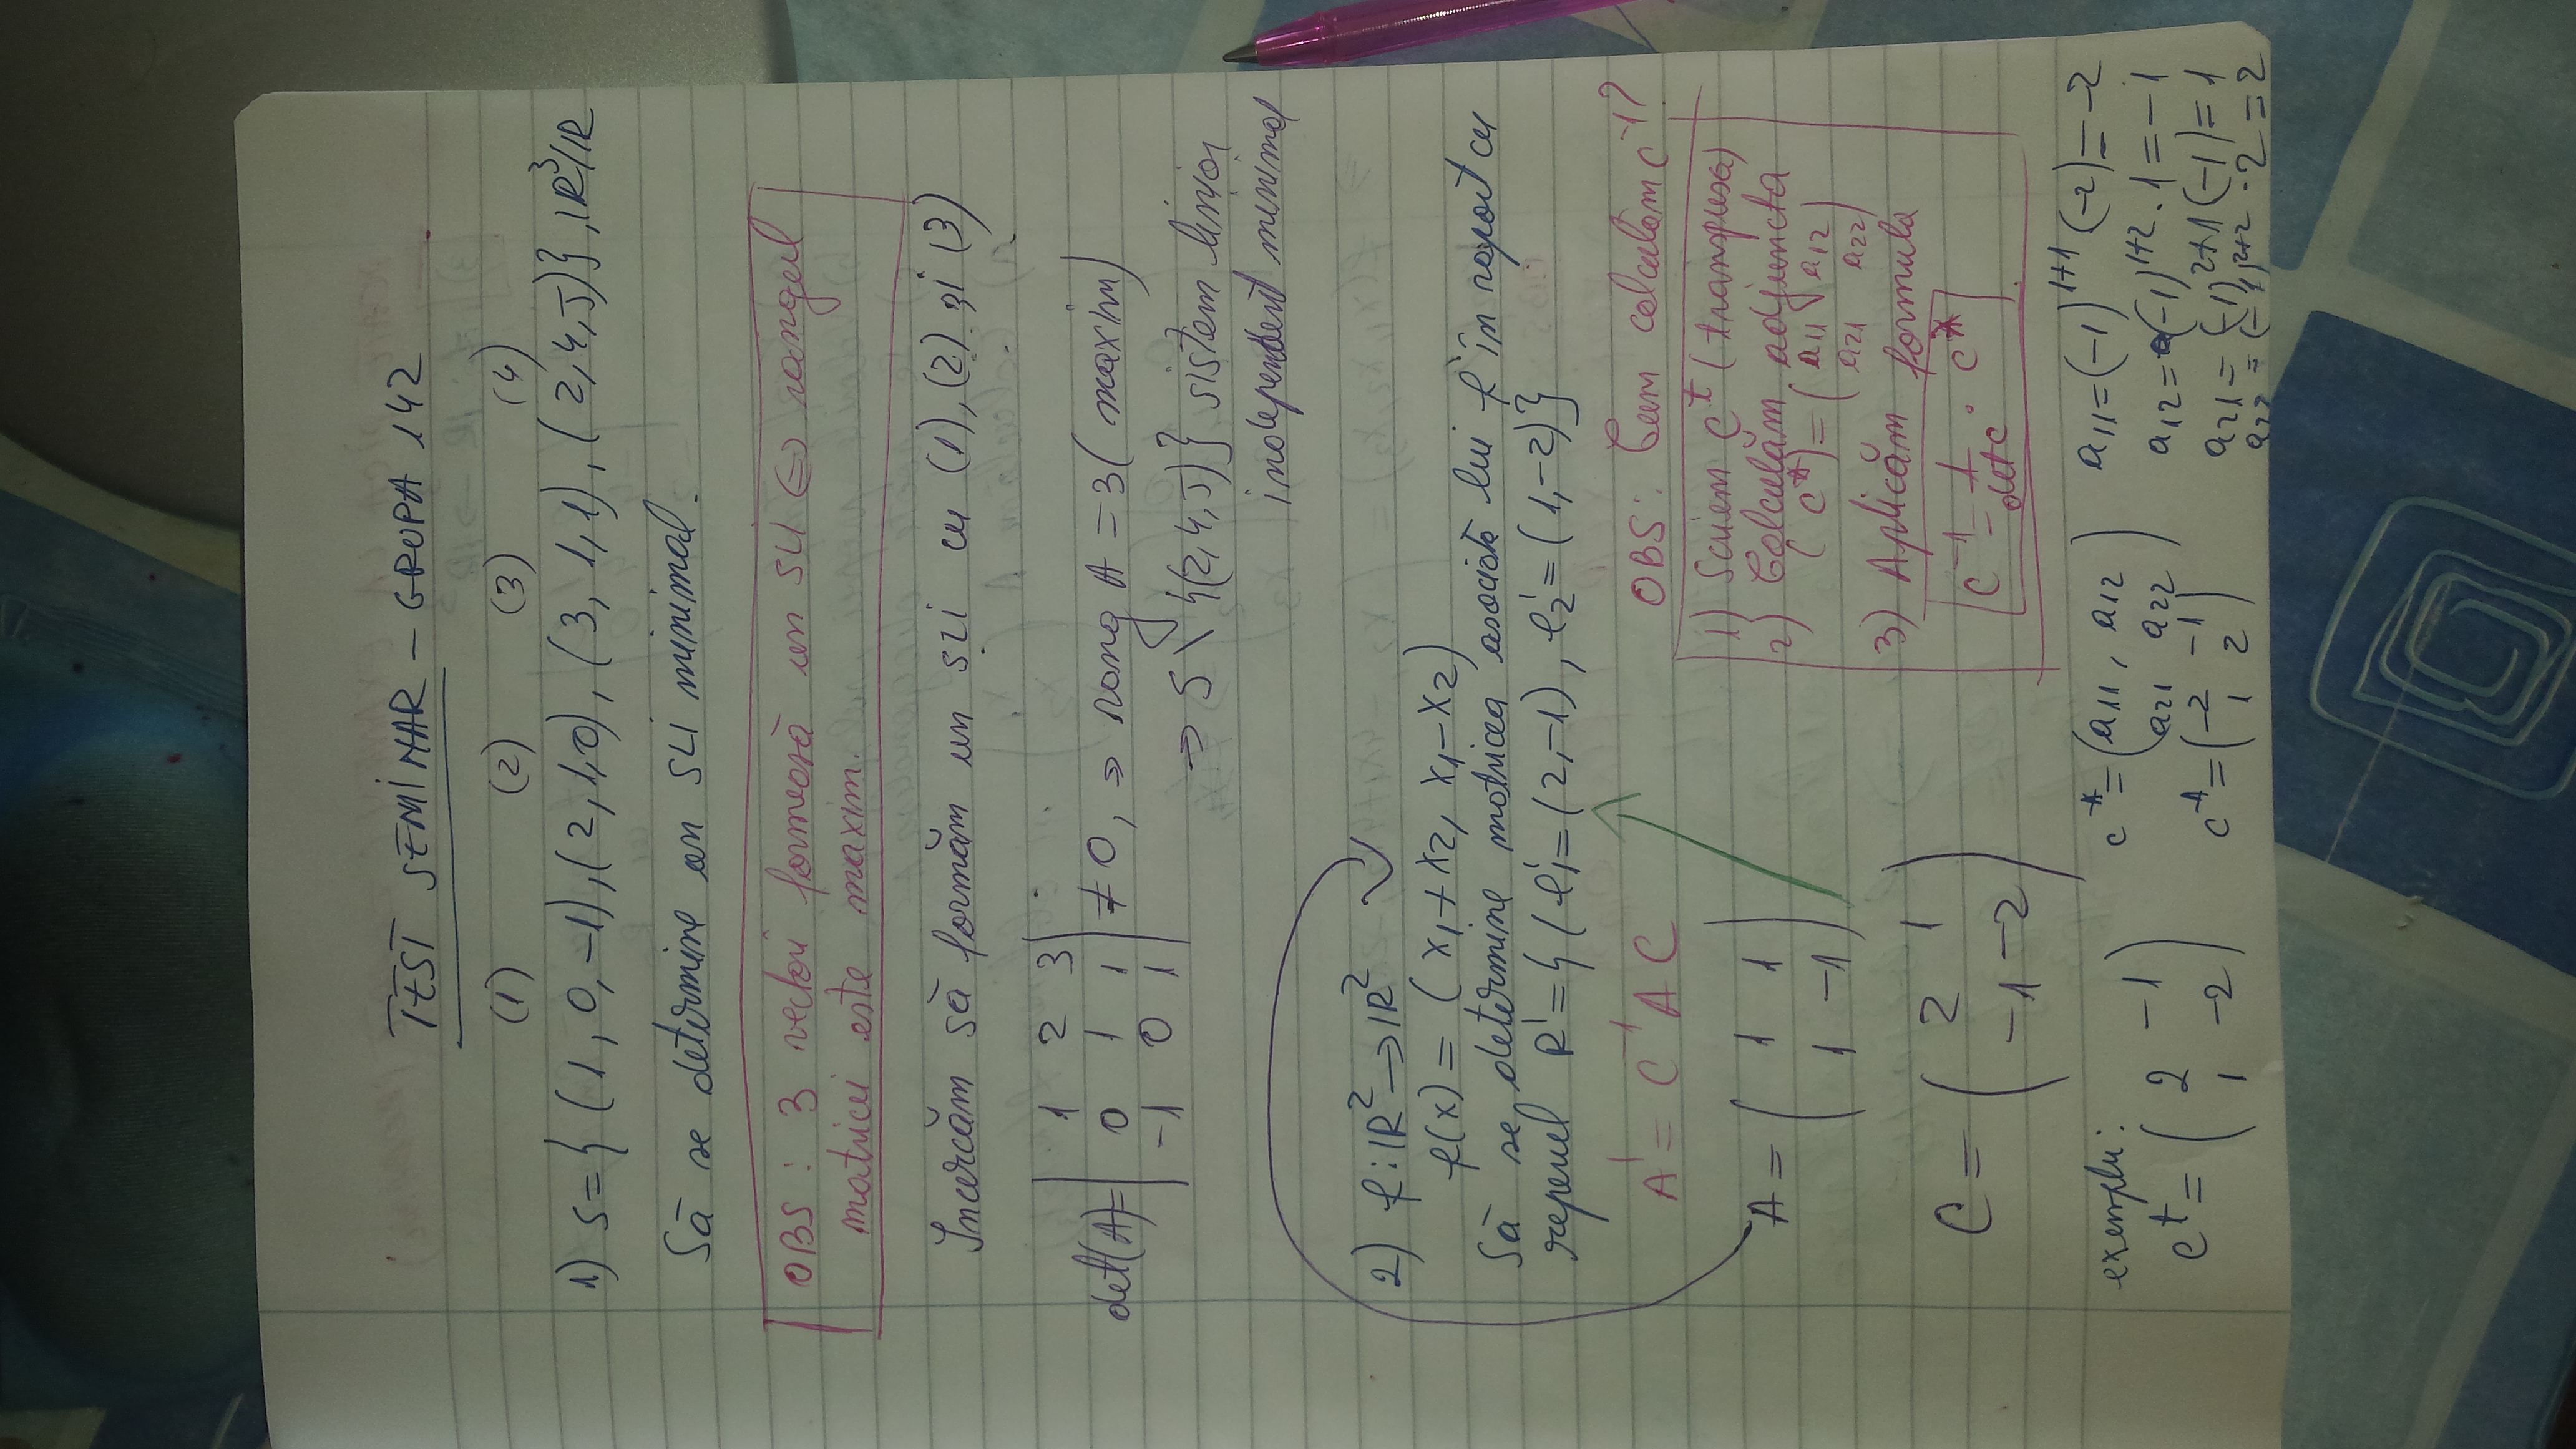 TEST SEMINAR – GRUPA 142
(1) (2) (3) (4)
1) S={ (1, 0, -1), (2, 1, 0), (3, 1, 1), (2, 4, 5)}, IR³/IR
Să se determine un SLI minimal.
OBS: 3 vectori formează un SLI ⇔ rangul
matricei este maxim.
Încercăm să formăm un SLI cu (1), (2) și (3)
det(A)= | 1 2 3 |
| 0 1 1 | ≠ 0, ⇒ rang A = 3 (maxim)
| -1 0 1 |
⇒ S \ {(2,4,5)} sistem liniar
independent minimal
2) f: IR² → IR²
f(x) = (x₁+x₂, x₁-x₂)
Să se determine matricea asociată lui f în raport cu
reperul R' = { (e₁'= (2,-1), e₂' = (1,-2)}
A' = C⁻¹ A C
OBS: Cum calculăm C⁻¹?
1) Scriem Cᵗ (transpusa)
2) Calculăm adjuncta
(C*) = ( a11 a12
a21 a22 )
3) Aplicăm formula
C⁻¹ = 1/det C · C*
A = ( 1 1
1 -1 )
C = ( 2 1
-1 -2 )
exemplu:
Cᵗ = ( 2 -1
1 -2 )
C* = ( a11, a12
a21 a22 )
C* = ( -2 -1
1 2 )
a11 = (-1)¹⁺¹ (-2) = -2
a12 = (-1)¹⁺² · 1 = -1
a21 = (-1)²⁺¹ (-1) = 1
a22 = (-1)²⁺² · 2 = 2